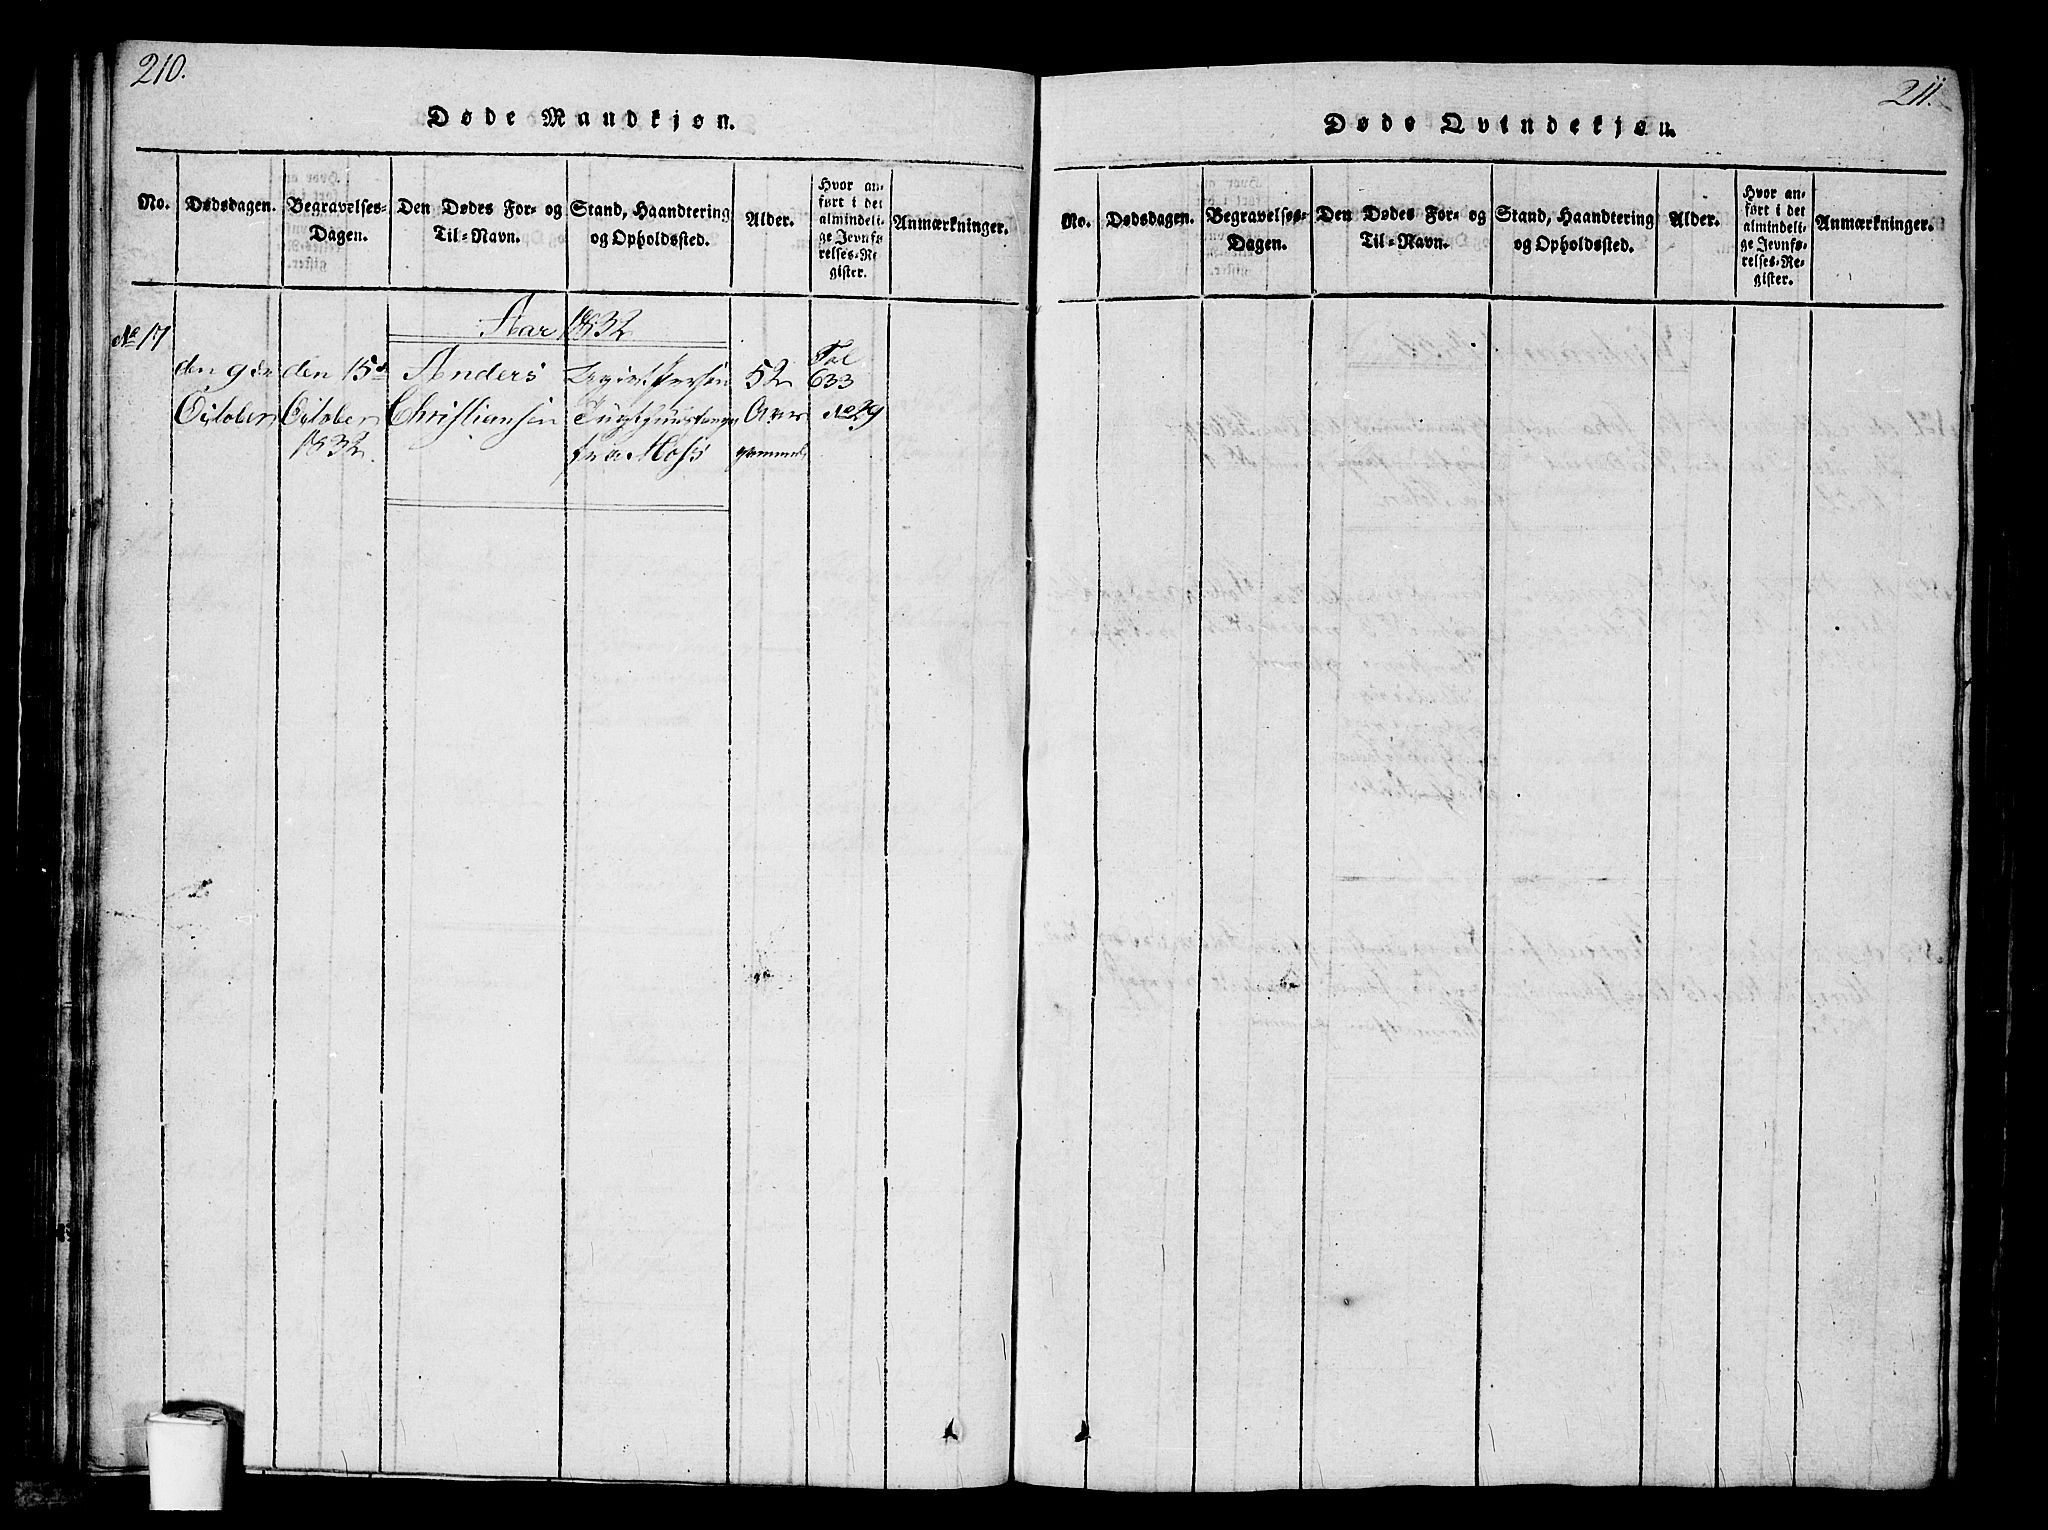 210.
Døde Mandkjøn.
No.
Dødsdagen.
Begravelses=
Dagen.
Den Dødes For= og
Til=Navn.
Stand, Haandtering
og Opholdssted.
Alder.
Hvor an=
ført i det
almindeli=
ge Jevnfø=
relses=Re=
gister.
Anmærkninger.
Aar 1832
No 17
den 9de
October
den 15de
October
1832.
Anders
Christiansen
fra Moss
52
Aar
gammel
Fol
633
No 29
211.
Døde Qvindekjøn.
No.
Dødsdagen.
Begravelses=
Dagen.
Den Dødes For= og
Til=Navn.
Stand, Haandtering
og Opholdssted.
Alder.
Hvor an=
ført i det
almindeli=
ge Jevnfø=
relses=Re=
gister.
Anmærkninger.